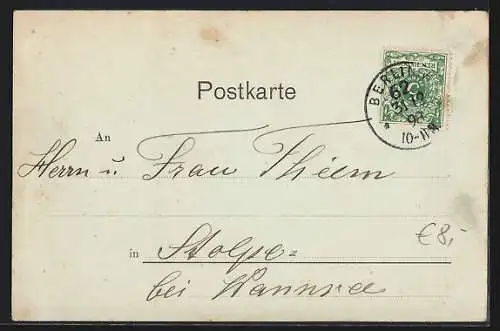 Postkarte
BERLIN
62
10-11
An
Herrn u Frau Thiem
in Stolpe-
bei Wannsee
€8,-